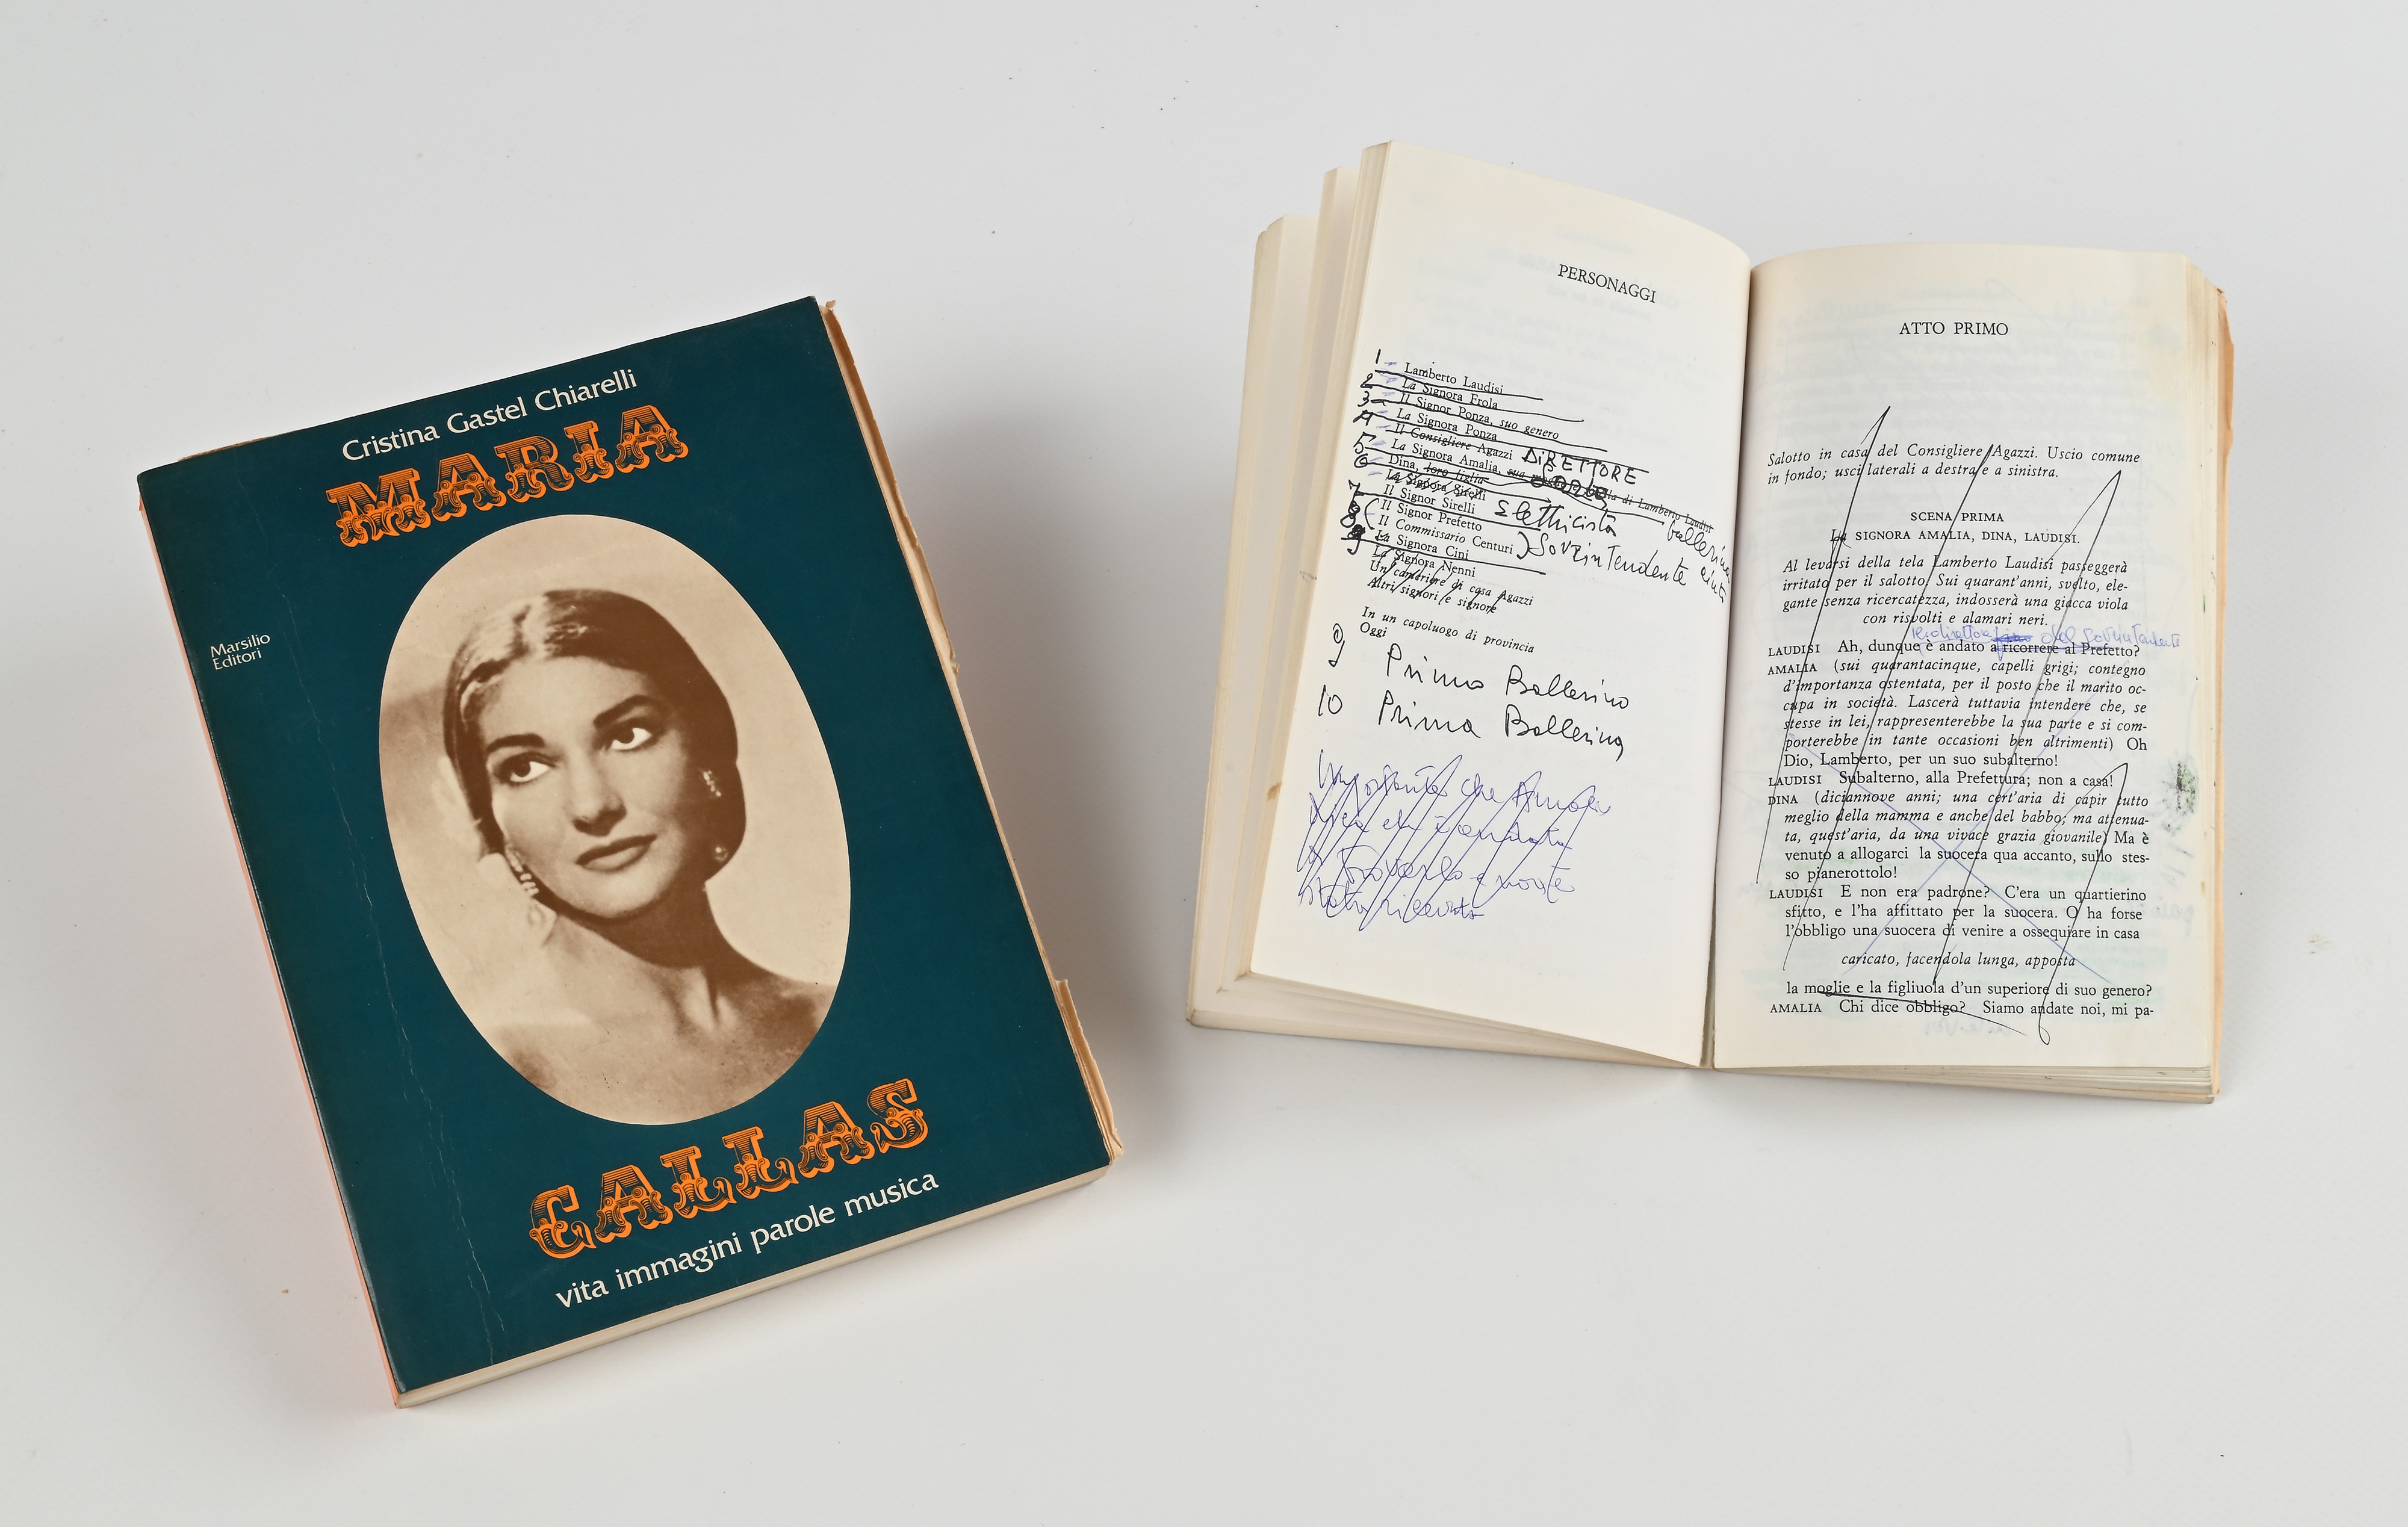 Cristina Gastel Chiarelli
MARIA
Marsilio
Editori
CALLAS
vita immagini parole musica
PERSONAGGI
1 Lamberto Laudisi
2 La Signora Frola
3 Il Signor Ponza, suo genero
4 La Signora Ponza
5 Il Consigliere Agazzi DIRETTORE
6 La Signora Amalia, sua di Lamberto Laudisi
Dina, loro figlia ballerina
La Signora Sirelli
7 Il Signor Sirelli Elettricista
8 Il Signor Prefetto
Il Commissario Centuri ) Sovrintendente
La Signora Cini
La Signora Nenni
Un cameriere di casa Agazzi
Altri signori e signore
In un capoluogo di provincia
Oggi
9 Primo Ballerino
10 Prima Ballerina
Importante che
ATTO PRIMO
Salotto in casa del Consigliere Agazzi. Uscio comune
in fondo; usci laterali a destra e a sinistra.
SCENA PRIMA
La SIGNORA AMALIA, DINA, LAUDISI.
Al levarsi della tela Lamberto Laudisi passeggerà
irritato per il salotto. Sui quarant'anni, svelto, ele-
gante senza ricercatezza, indosserà una giacca viola
con risvolti e alamari neri.
del Sovrintendente
LAUDISI Ah, dunque è andato a ricorrere al Prefetto?
AMALIA (sui quarantacinque, capelli grigi; contegno
d'importanza ostentata, per il posto che il marito oc-
cupa in società. Lascerà tuttavia intendere che, se
stesse in lei, rappresenterebbe la sua parte e si com-
porterebbe in tante occasioni ben altrimenti) Oh
Dio, Lamberto, per un suo subalterno!
LAUDISI Subalterno, alla Prefettura; non a casa!
DINA (diciannove anni; una cert'aria di capir tutto
meglio della mamma e anche del babbo; ma attenua-
ta, quest'aria, da una vivace grazia giovanile) Ma è
venuto a allogarci la suocera qua accanto, sullo stes-
so pianerottolo!
LAUDISI E non era padrone? C'era un quartierino
sfitto, e l'ha affittato per la suocera. O ha forse
l'obbligo una suocera di venire a ossequiare in casa
caricato, facendola lunga, apposta
la moglie e la figliuola d'un superiore di suo genero?
AMALIA Chi dice obbligo? Siamo andate noi, mi pa-